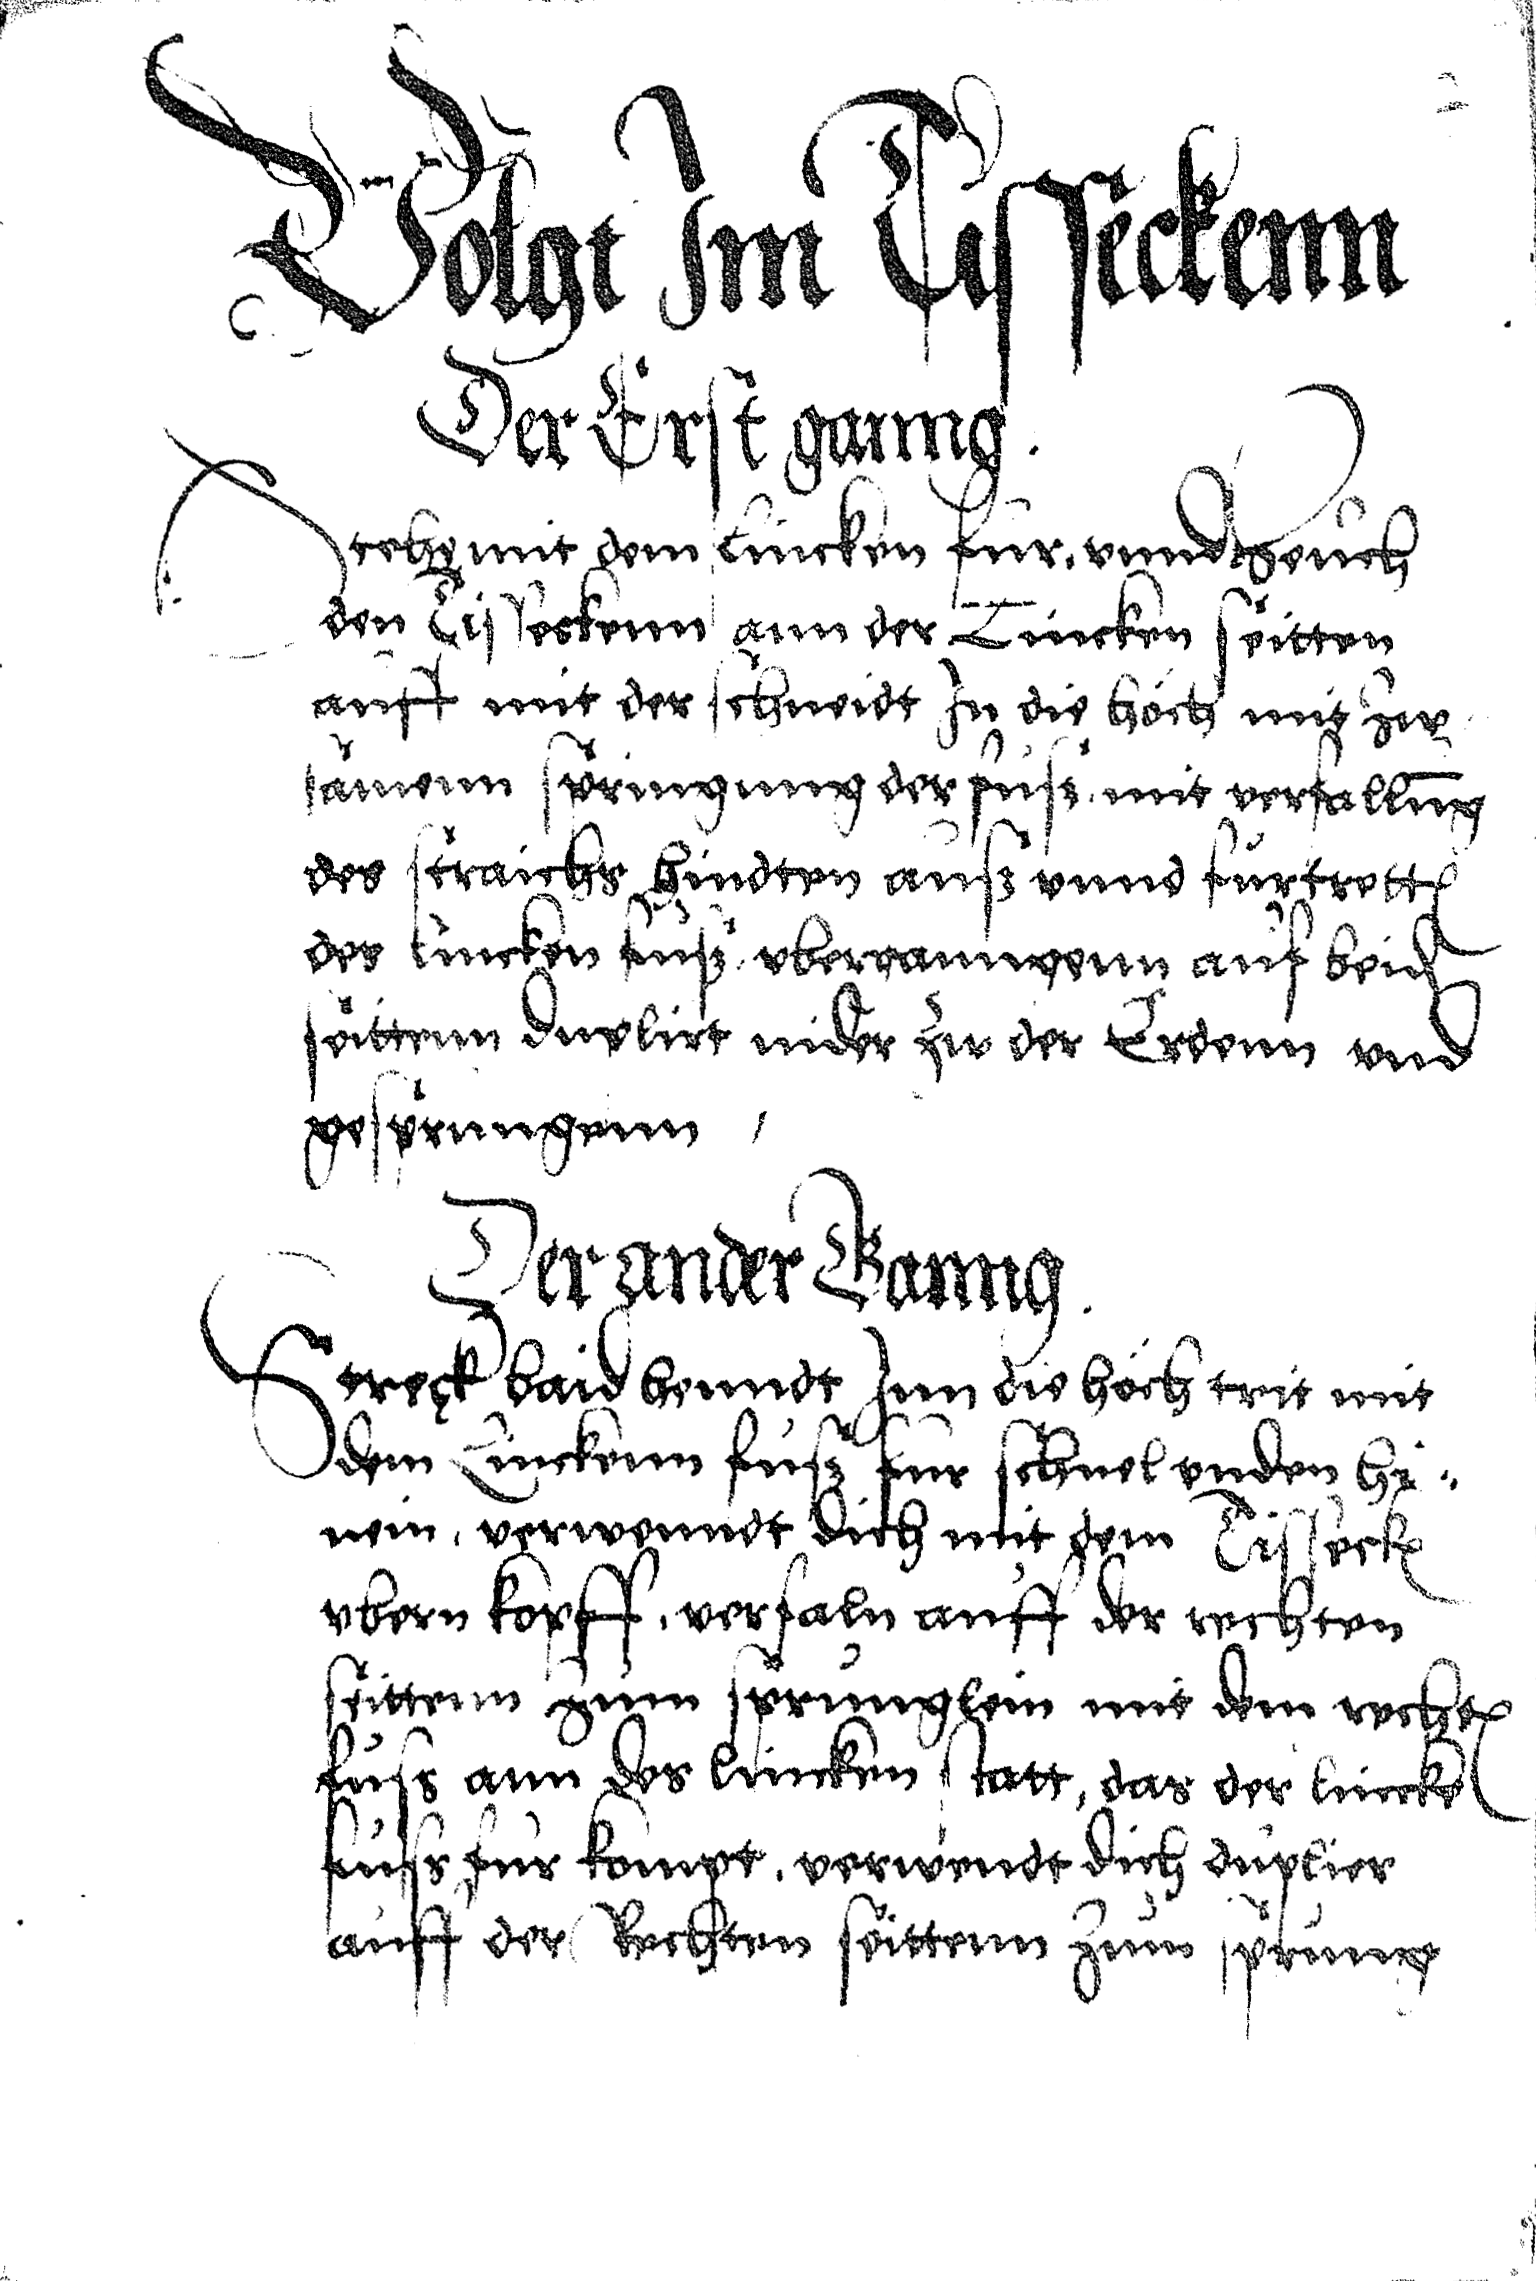 Volgt Im Tisseckenn
Der Erst ganng.
Stehe mit dem lincken für, vnnd zeuch
den Tisseckenn ann der Lincken seitten
auff mit der schneidt In die höch mit zw
samenn springung der füsß, mit verfallung
des straichs hindten ausß vnnd fürtretten
des lincken fusß, vberranngenn auf beid
seittenn duplirt nider zw der Erdenn vnd
gesprungenn /
Der ander Ganng.
Streck baid henndt Inn die höch trit mit
dem Linckenn fusß für schnel vnden hi-
nein, verwenndt dich mit dem Tisseck
vbern kopff, verfaln auff der rechten
seittenn zum sprunglein mit dem rechten
fuss ann des lincken statt, das der lincke
fuss für kompt, verwendt dich duplier
auff der Rechten seittenn zum sprung